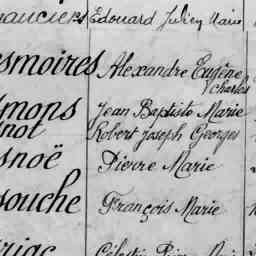 Edouard Julien Marie
esmoires Alexandre Eugène
Charles
mons Jean Baptiste Marie
not Robert Joseph Georges
snoë Pierre Marie
souche François Marie
Célestin